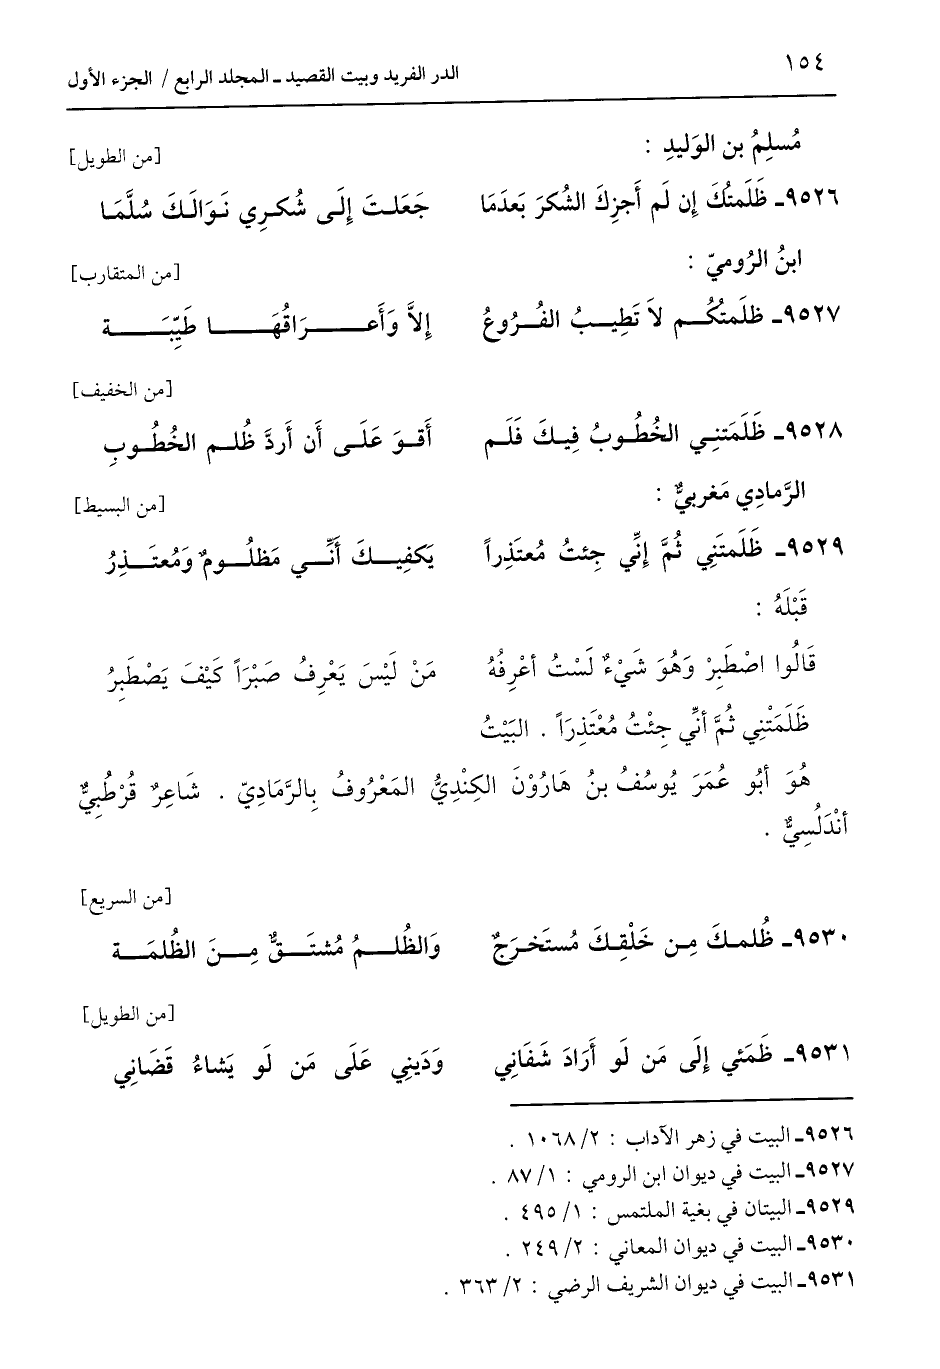 ١٥٤
الدر الفريد وبيت القصيد ـ المجلد الرابع / الجزء الأول
مُسلِمُ بن الوَليدِ :
[من الطويل]
٩٥٢٦ـ ظَلَمتُكَ إِن لَم أَجزِكَ الشُكرَ بَعدَمَا جَعَلتَ إِلَى شُكرِي نَوَالَكَ سُلَّمَا
ابنُ الرُوميّ :
[من المتقارب]
٩٥٢٧ـ ظلَمتُكُم لاَ تَطِيبُ الفُرُوعُ إِلاَّ وَأَعرَاقُهَا طَيِّبَة
[من الخفيف]
٩٥٢٨ـ ظَلَمَتنِي الخُطُوبُ فِيكَ فَلَم أَقوَ عَلَى أَن أَردَّ ظُلم الخُطُوبِ
الرَّمادِي مَغربيٌّ :
[من البسيط]
٩٥٢٩ـ ظَلَمتَنِي ثُمَّ إِنِّي جِئتُ مُعتَذِراً يَكفِيكَ أَنِّي مَظلُومٌ وَمُعتَذِرُ
قَبْلَهُ :
قَالُوا اصْطَبِرْ وَهُوَ شَيْءٌ لَسْتُ أعْرِفُهُ مَنْ لَيْسَ يَعْرِفُ صَبْرَاً كَيْفَ يَصْطَبِرُ
ظَلَمَتْنِي ثُمَّ أنِّي جِئْتُ مُعْتَذِرَاً . البَيْتُ
هُوَ أَبُو عُمَرَ يُوسُفُ بنُ هَارُوْنَ الكِنْدِيُّ المَعْرُوفُ بِالرَّمَادِيّ . شَاعِرٌ قُرْطُبِيٌّ
أَنْدَلُسِيٌّ .
[من السريع]
٩٥٣٠ـ ظُلمكَ مِن خَلْقِكَ مُستَخرَجٌ وَالظُلمُ مُشتَقٌّ مِنَ الظُلمَة
[من الطويل]
٩٥٣١ـ ظَمَئي إِلَى مَن لَو أَرَادَ شَفَانِي وَدَينِي عَلَى مَن لَو يَشاءُ قَضَانِي
٩٥٢٦ـ البيت في زهر الآداب : ٢/ ١٠٦٨ .
٩٥٢٧ـ البيت في ديوان ابن الرومي : ١/ ٨٧ .
٩٥٢٩ـ البيتان في بغية الملتمس : ١/ ٤٩٥ .
٩٥٣٠ـ البيت في ديوان المعاني : ٢/ ٢٤٩ .
٩٥٣١ـ البيت في ديوان الشريف الرضي : ٢/ ٣٦٣ .